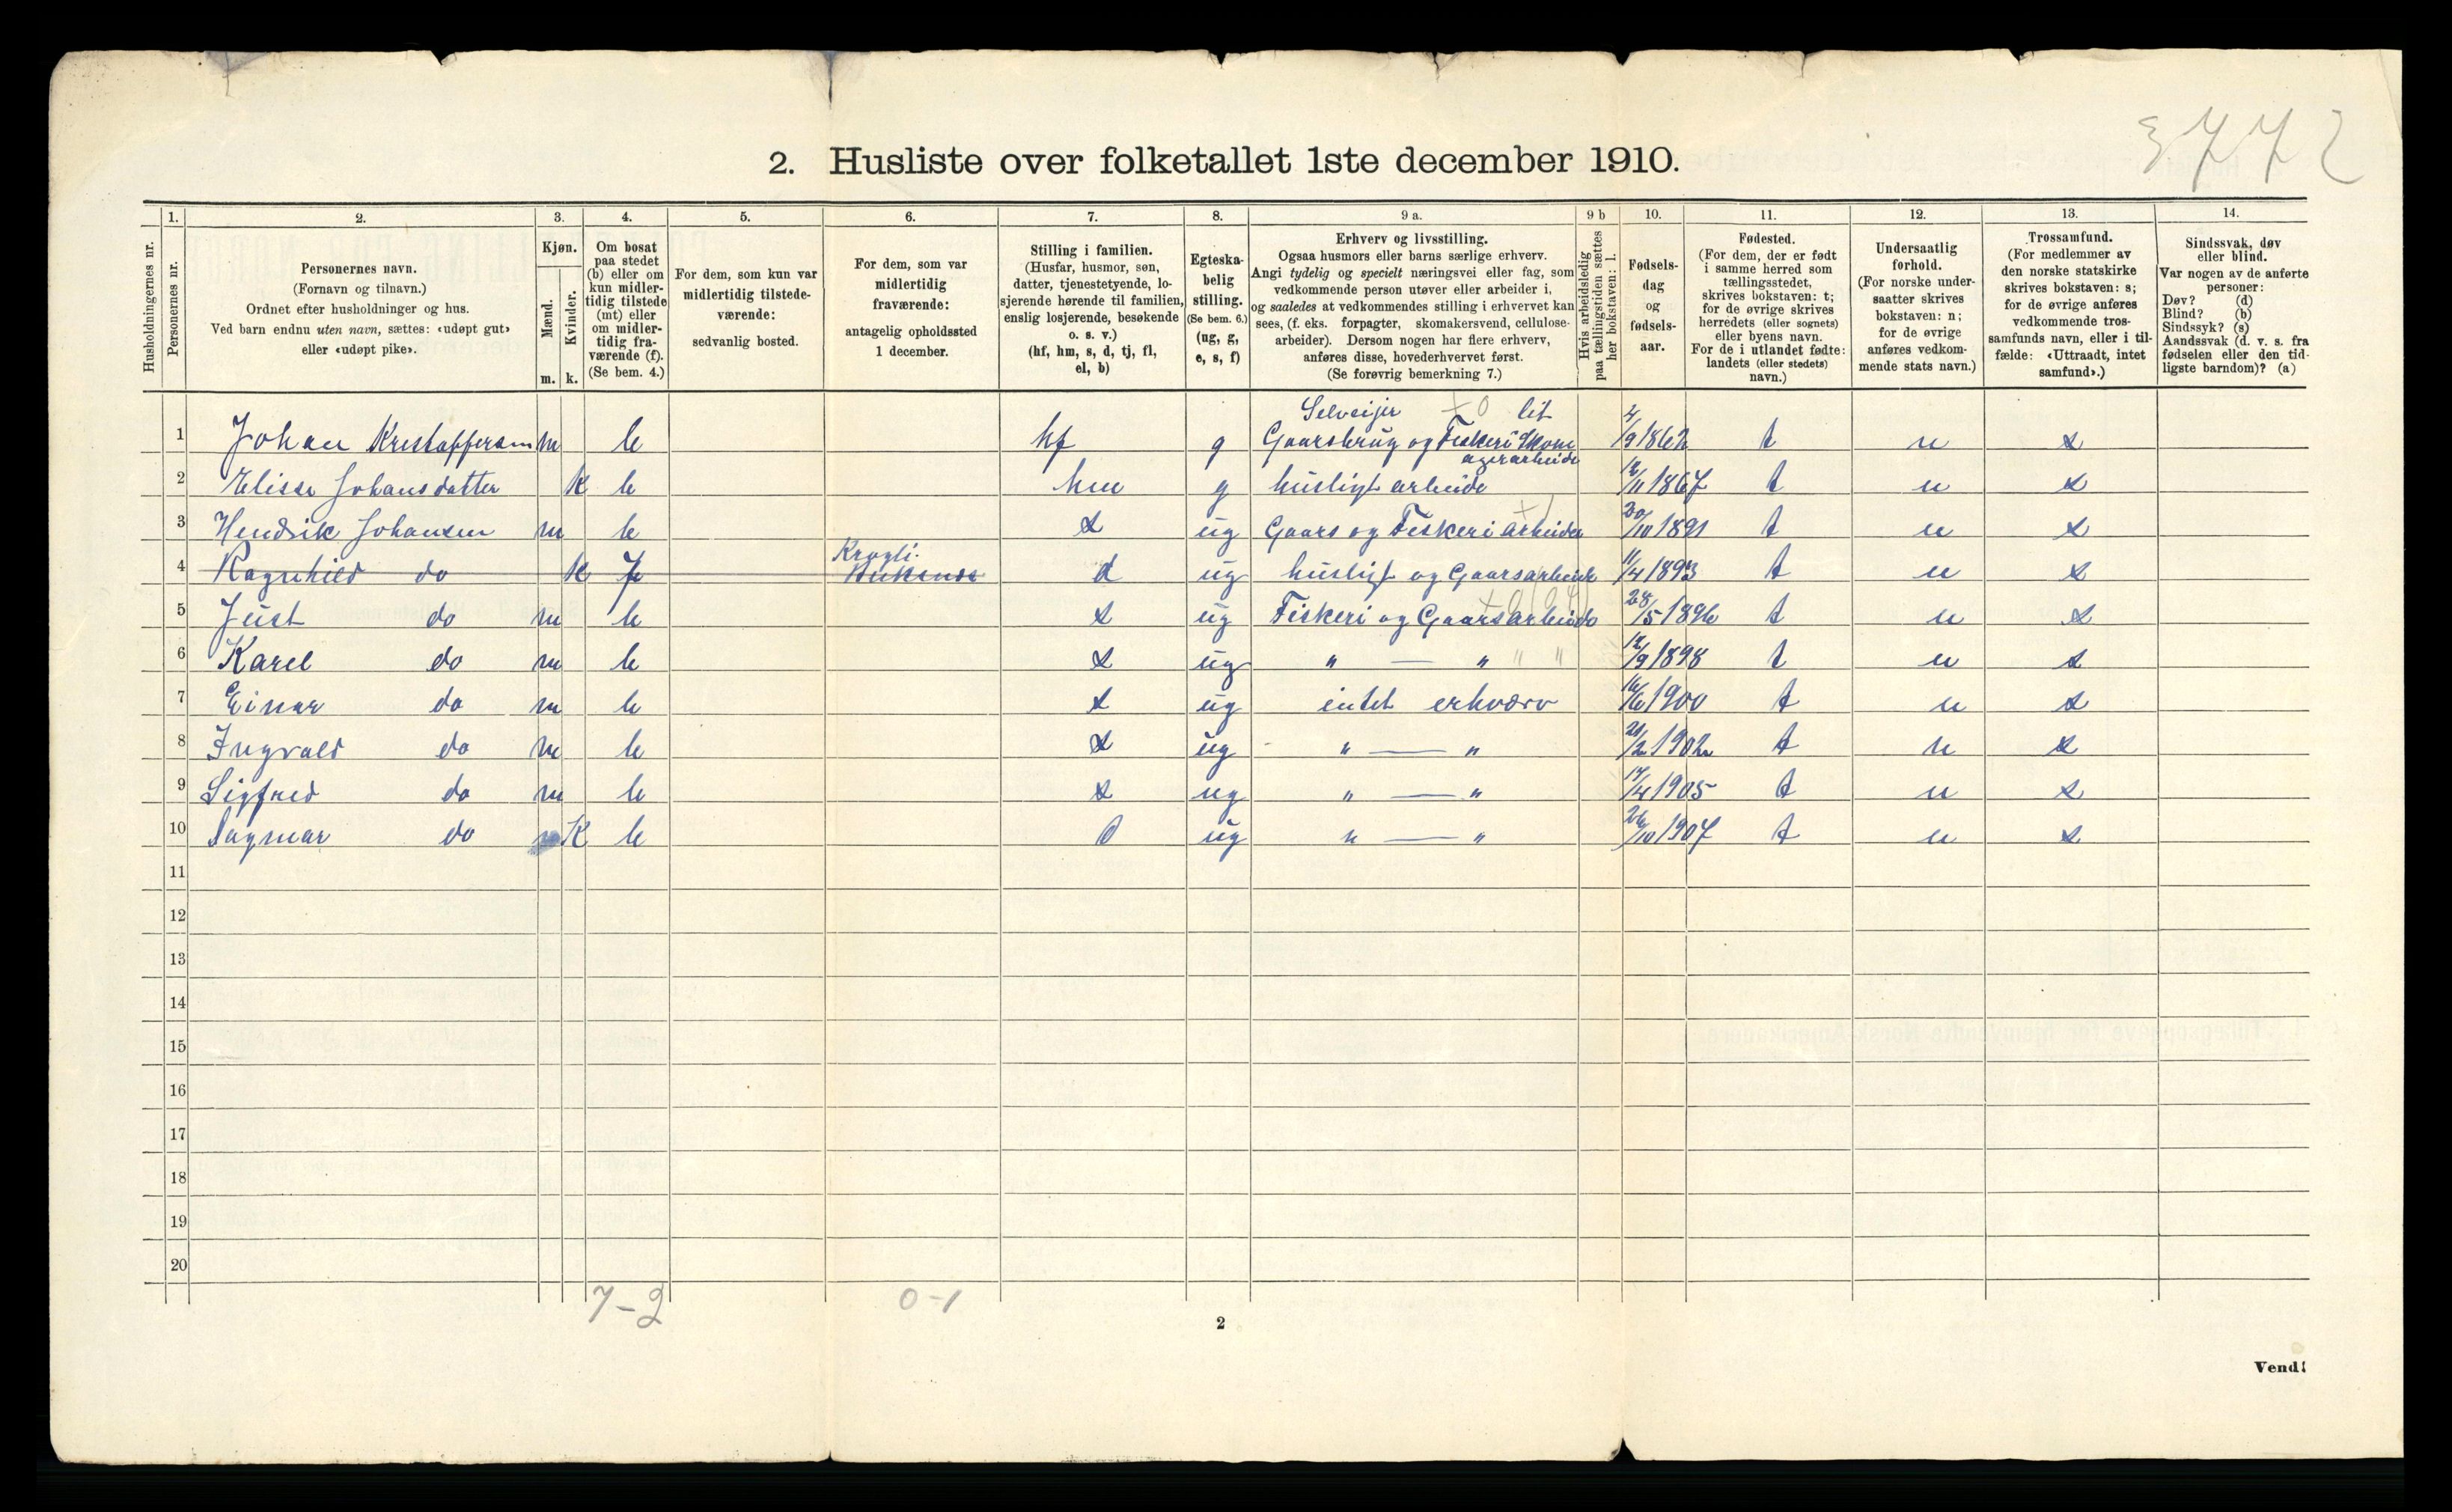 3772
2. Husliste over folketallet 1ste december 1910.
1. 2. 3. 4. 5. 6. 7. 8. 9 a. 9 b 10. 11. 12. 13. 14.
Husholdningernes nr.
Personernes nr.
Personernes navn.
(Fornavn og tilnavn.)
Ordnet efter husholdninger og hus.
Ved barn endnu uten navn, sættes: «udøpt gut»
eller «udøpt pike».
Kjøn.
Mænd.
Kvinder.
m. k.
Om bosat
paa stedet
(b) eller om
kun midler-
tidig tilstede
(mt) eller
om midler-
tidig fra-
værende (f).
(Se bem. 4.)
For dem, som kun var
midlertidig tilstede-
værende:
sedvanlig bosted.
For dem, som var
midlertidig
fraværende:
antagelig opholdssted
1 december.
Stilling i familien.
(Husfar, husmor, søn,
datter, tjenestetyende, lo-
sjerende hørende til familien,
enslig losjerende, besøkende
o. s. v.)
(hf, hm, s, d, tj, fl,
el, b)
Egteska-
belig
stilling.
(Se bem. 6.)
(ug, g,
e, s, f)
Erhverv og livsstilling.
Ogsaa husmors eller barns særlige erhverv.
Angi tydelig og specielt næringsvei eller fag, som
vedkommende person utøver eller arbeider i,
og saaledes at vedkommendes stilling i erhvervet kan
sees, (f. eks. forpagter, skomakersvend, cellulose-
arbeider). Dersom nogen har flere erhverv,
anføres disse, hovederhvervet først.
(Se forøvrig bemerkning 7.)
Hvis arbeidsledig
paa tællingstiden sættes
her bokstaven: l.
Fødsels-
dag
og
fødsels-
aar.
Fødested.
(For dem, der er født
i samme herred som
tællingsstedet,
skrives bokstaven: t;
for de øvrige skrives
herredets (eller sognets)
eller byens navn.
For de i utlandet fødte:
landets (eller stedets)
navn.)
Undersaatlig
forhold.
(For norske under-
saatter skrives
bokstaven: n;
for de øvrige
anføres vedkom-
mende stats navn.)
Trossamfund.
(For medlemmer av
den norske statskirke
skrives bokstaven: s;
for de øvrige anføres
vedkommende tros-
samfunds navn, eller i til-
fælde: «Uttraadt, intet
samfund».)
Sindssvak, døv
eller blind.
Var nogen av de anførte
personer:
Døv? (d)
Blind? (b)
Sindssyk? (s)
Aandssvak (d. v. s. fra
fødselen eller den tid-
ligste barndom)? (a)
Selveijer +0 lit
1 Johan Kristoffersen m b hf g Gaarsbrug og Fiskeri Skom
agerarbeide 4/9 1862 t n s
2 Elise Johansdatter K b hm g husligt arbeide 12/11 1867 t n s
3 Hendrik Johansen m b s ug Gaars og Fiskeri arbeider 20/10 1891 t n s
Krogli.
4 Ragnhild do K f d ug husligt og Gaarsarbeide 11/4 1893 t n s
5 Just do m b s ug Fiskeri og Gaarsarbeide 28/5 1896 t n s
6 Karel do m b s ug " — " " " 12/9 1898 t n s
7 Einar do m b s ug intet erhværv 16/6 1900 t n s
8 Ingvald do m b s ug " — " 21/2 1902 t n s
9 Sigfred do m b s ug " — " 14/4 1905 t n s
10 Dagmar do K b d ug " — " 26/10 1907 t n s
11
12
13
14
15
16
17
18
19
20
7-2 0-1
2
Vend!